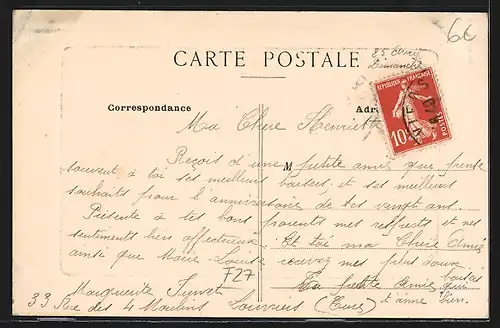 6€
85 
Dimanche
CARTE POSTALE
REPUBLIQUE FRANÇAISE
10
POSTES
Correspondance
Adr
Ma Chère Henriette
Reçois d'une petite amie que pense
M
souvent à toi ses meilleurs baisers et ses meilleurs
souhaits pour l'anniversaire de tes vingt ans.
Présente à tes bons parents mes respects et mes
sentiments bien affectueux. Et toi ma Chère Amie
ainsi que Marie Louise recevez mes plus doux
baisers
F27
Ta petite Amie qui
Marguerite
t'aime bien.
33 Rue des 4 Moulins Louviers (Eure)